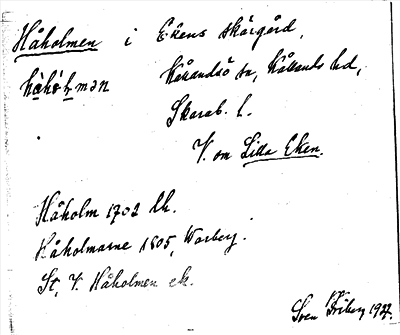 Håholmen i Ekens skärgård,
Kållandsö sn, Kållands hd,
Skarab. l.
V. om Lilla Eken.
Håholm 1702 lk.
Håholmarne 1805, Warberg.
St., V. Håholmen ek.
Sven Friberg 1927.